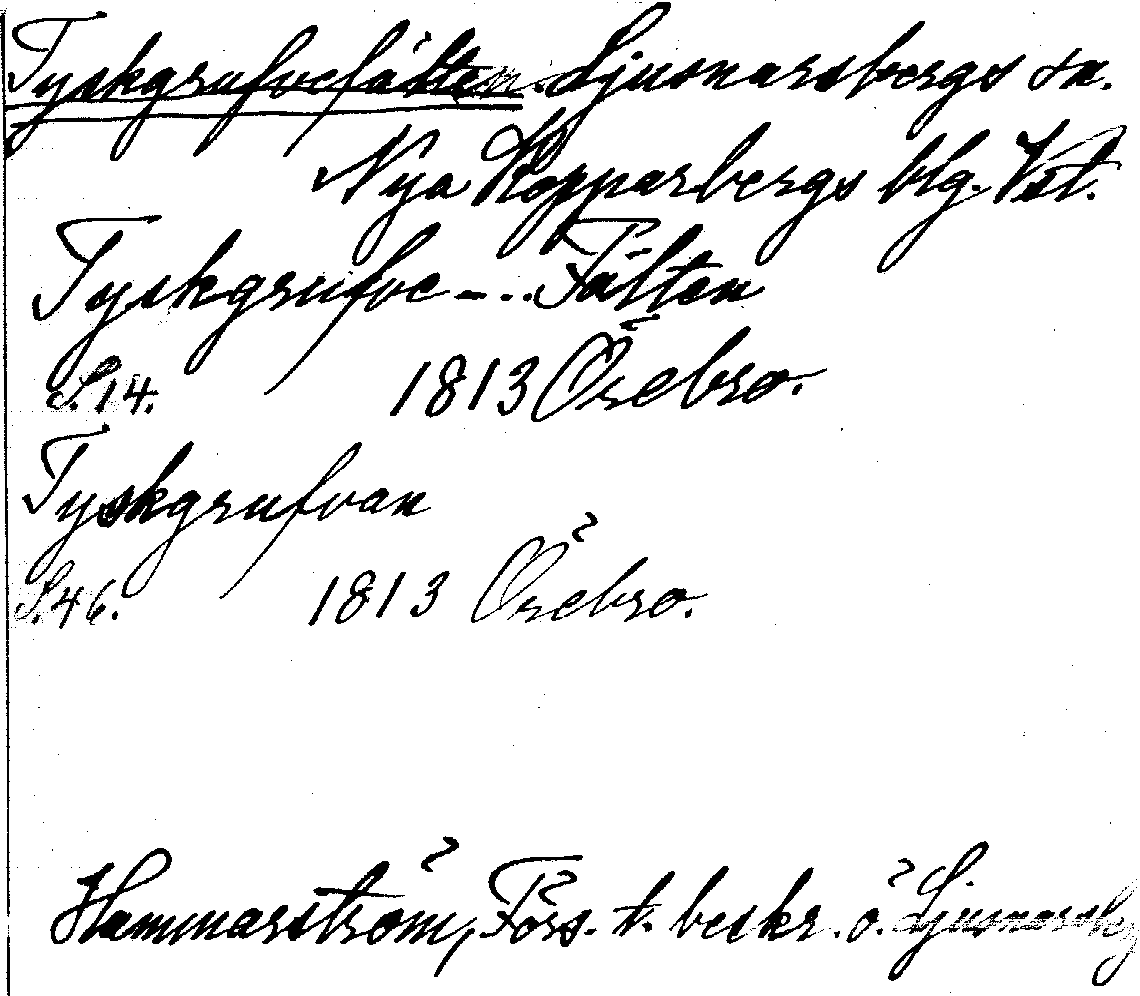 Tyskgrufvefälten Ljusnarsbergs sn.
Nya Kopparbergs blg. Vstl.
Tyskgrufve-... Fälten
S. 14. 1813 Örebro.
Tyskgrufvan
S. 46. 1813 Örebro.
Hammarström, Förs. t. beskr. ö. Ljusnarsbg